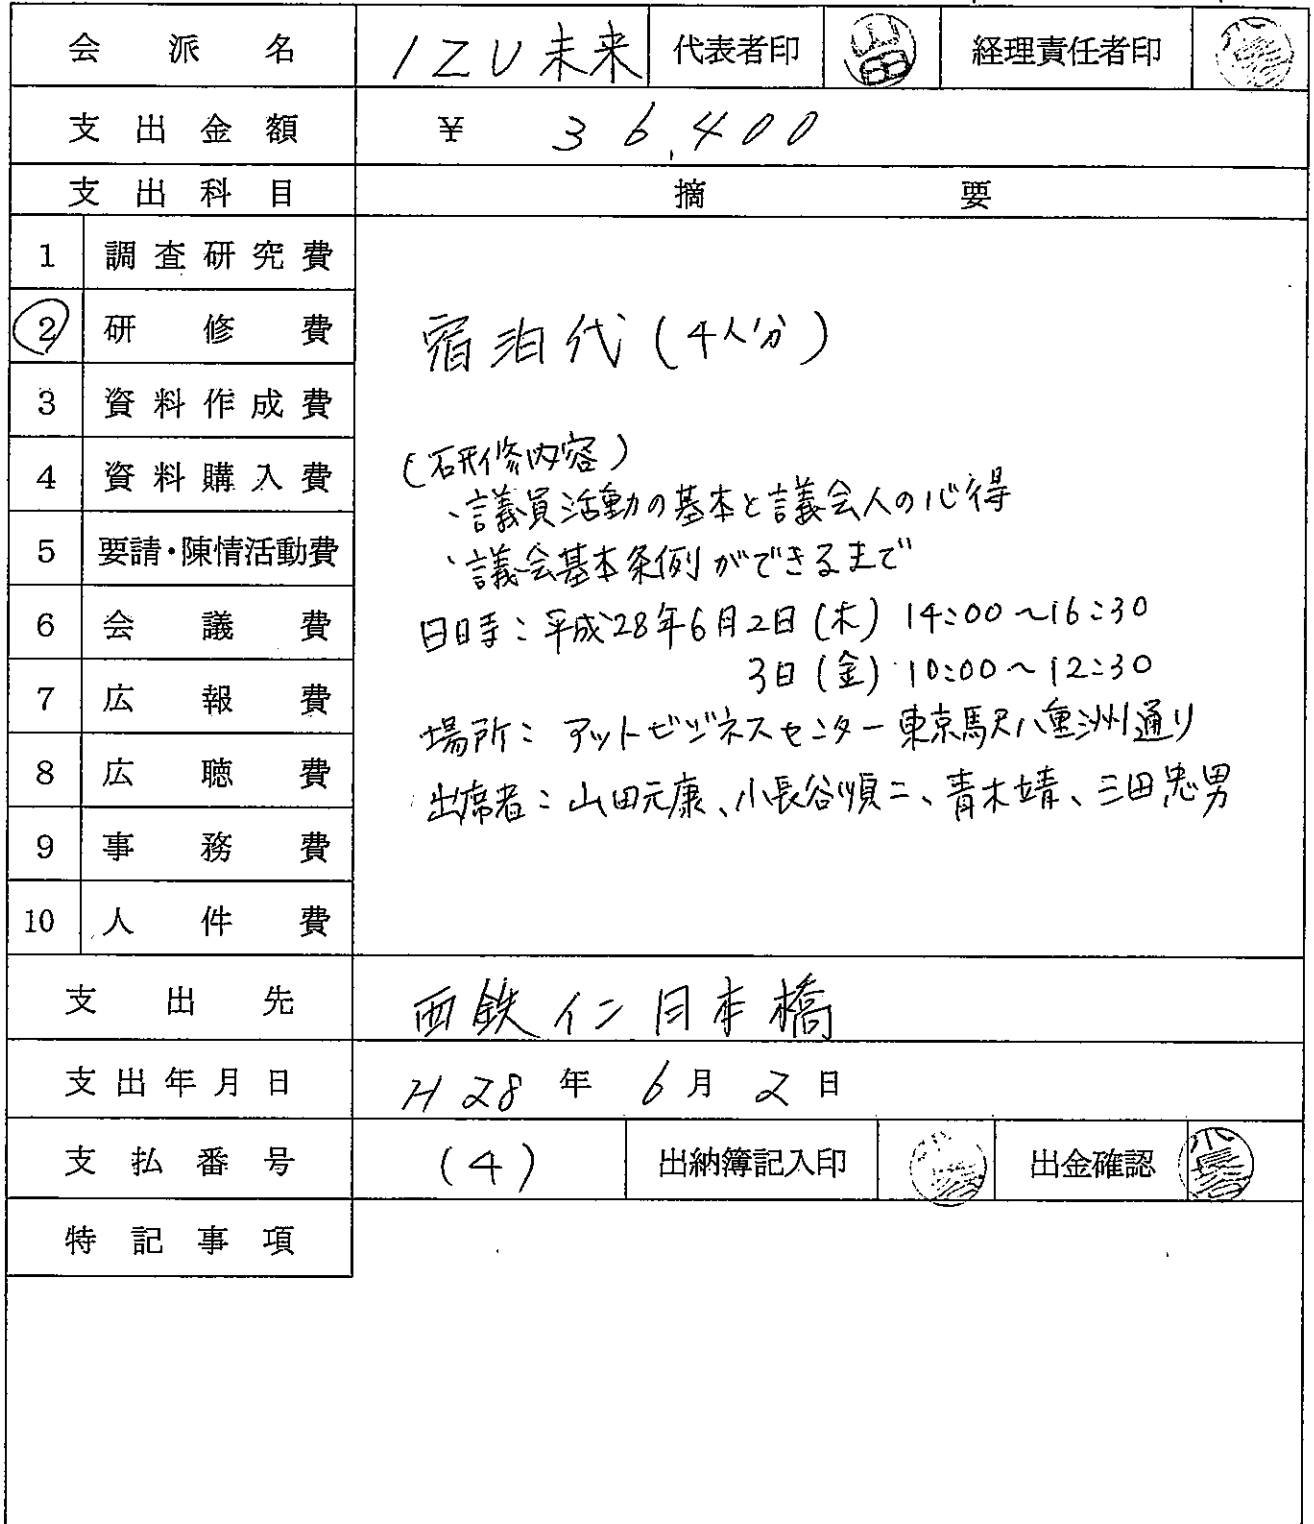 会派名 IZU未来 代表者印 山田 経理責任者印
支出金額 ¥ 36,400
支出科目 摘要
1 調査研究費
2 研修費
3 資料作成費
4 資料購入費
5 要請・陳情活動費
6 会議費
7 広報費
8 広聴費
9 事務費
10 人件費
宿泊代(4人分)
(研修内容)
・議員活動の基本と議会人の心得
・議会基本条例ができるまで
日時:平成28年6月2日(木) 14:00~16:30
3日(金) 10:00~12:30
場所:アットビジネスセンター東京駅八重洲通り
出席者:山田元康、小長谷順二、青木靖、三田忠男
支出先 西鉄イン日本橋
支出年月日 H28年6月2日
支払番号 (4) 出納簿記入印 出金確認
特記事項